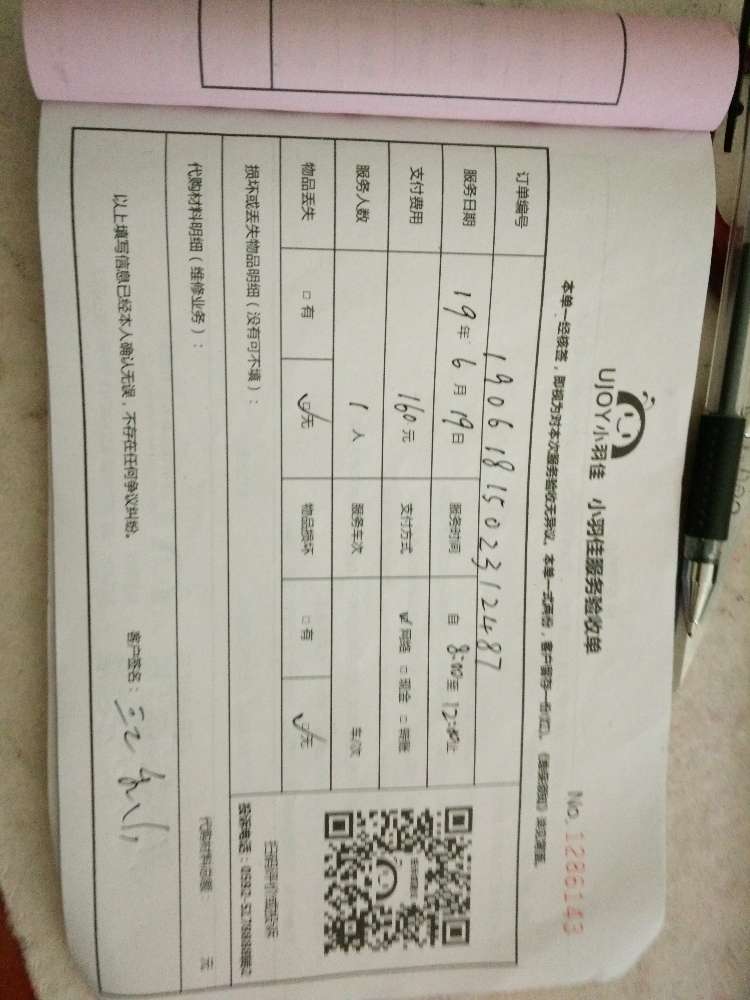 UJOY小羽佳 小羽佳服务验收单
No. 1286143
本单一经核签，即视为对本次服务验收无异议。本单一式两份，客户留存一份
订单编号 190618150231​2487
服务日期 19年 6月 19日 服务时间 自 8:00至 12:00止
支付费用 160元 支付方式 网络 □ 现金 □
服务人数 1人 服务车次 车/次
物品丢失 □有 □无 物品损坏 □有 □无
损坏或丢失物品明细（没有可不填）：
代购材料明细（维修业务）：
代购材料总额： 元
以上填写信息已经本人确认无误，不存在任何争议纠纷。 客户签名：